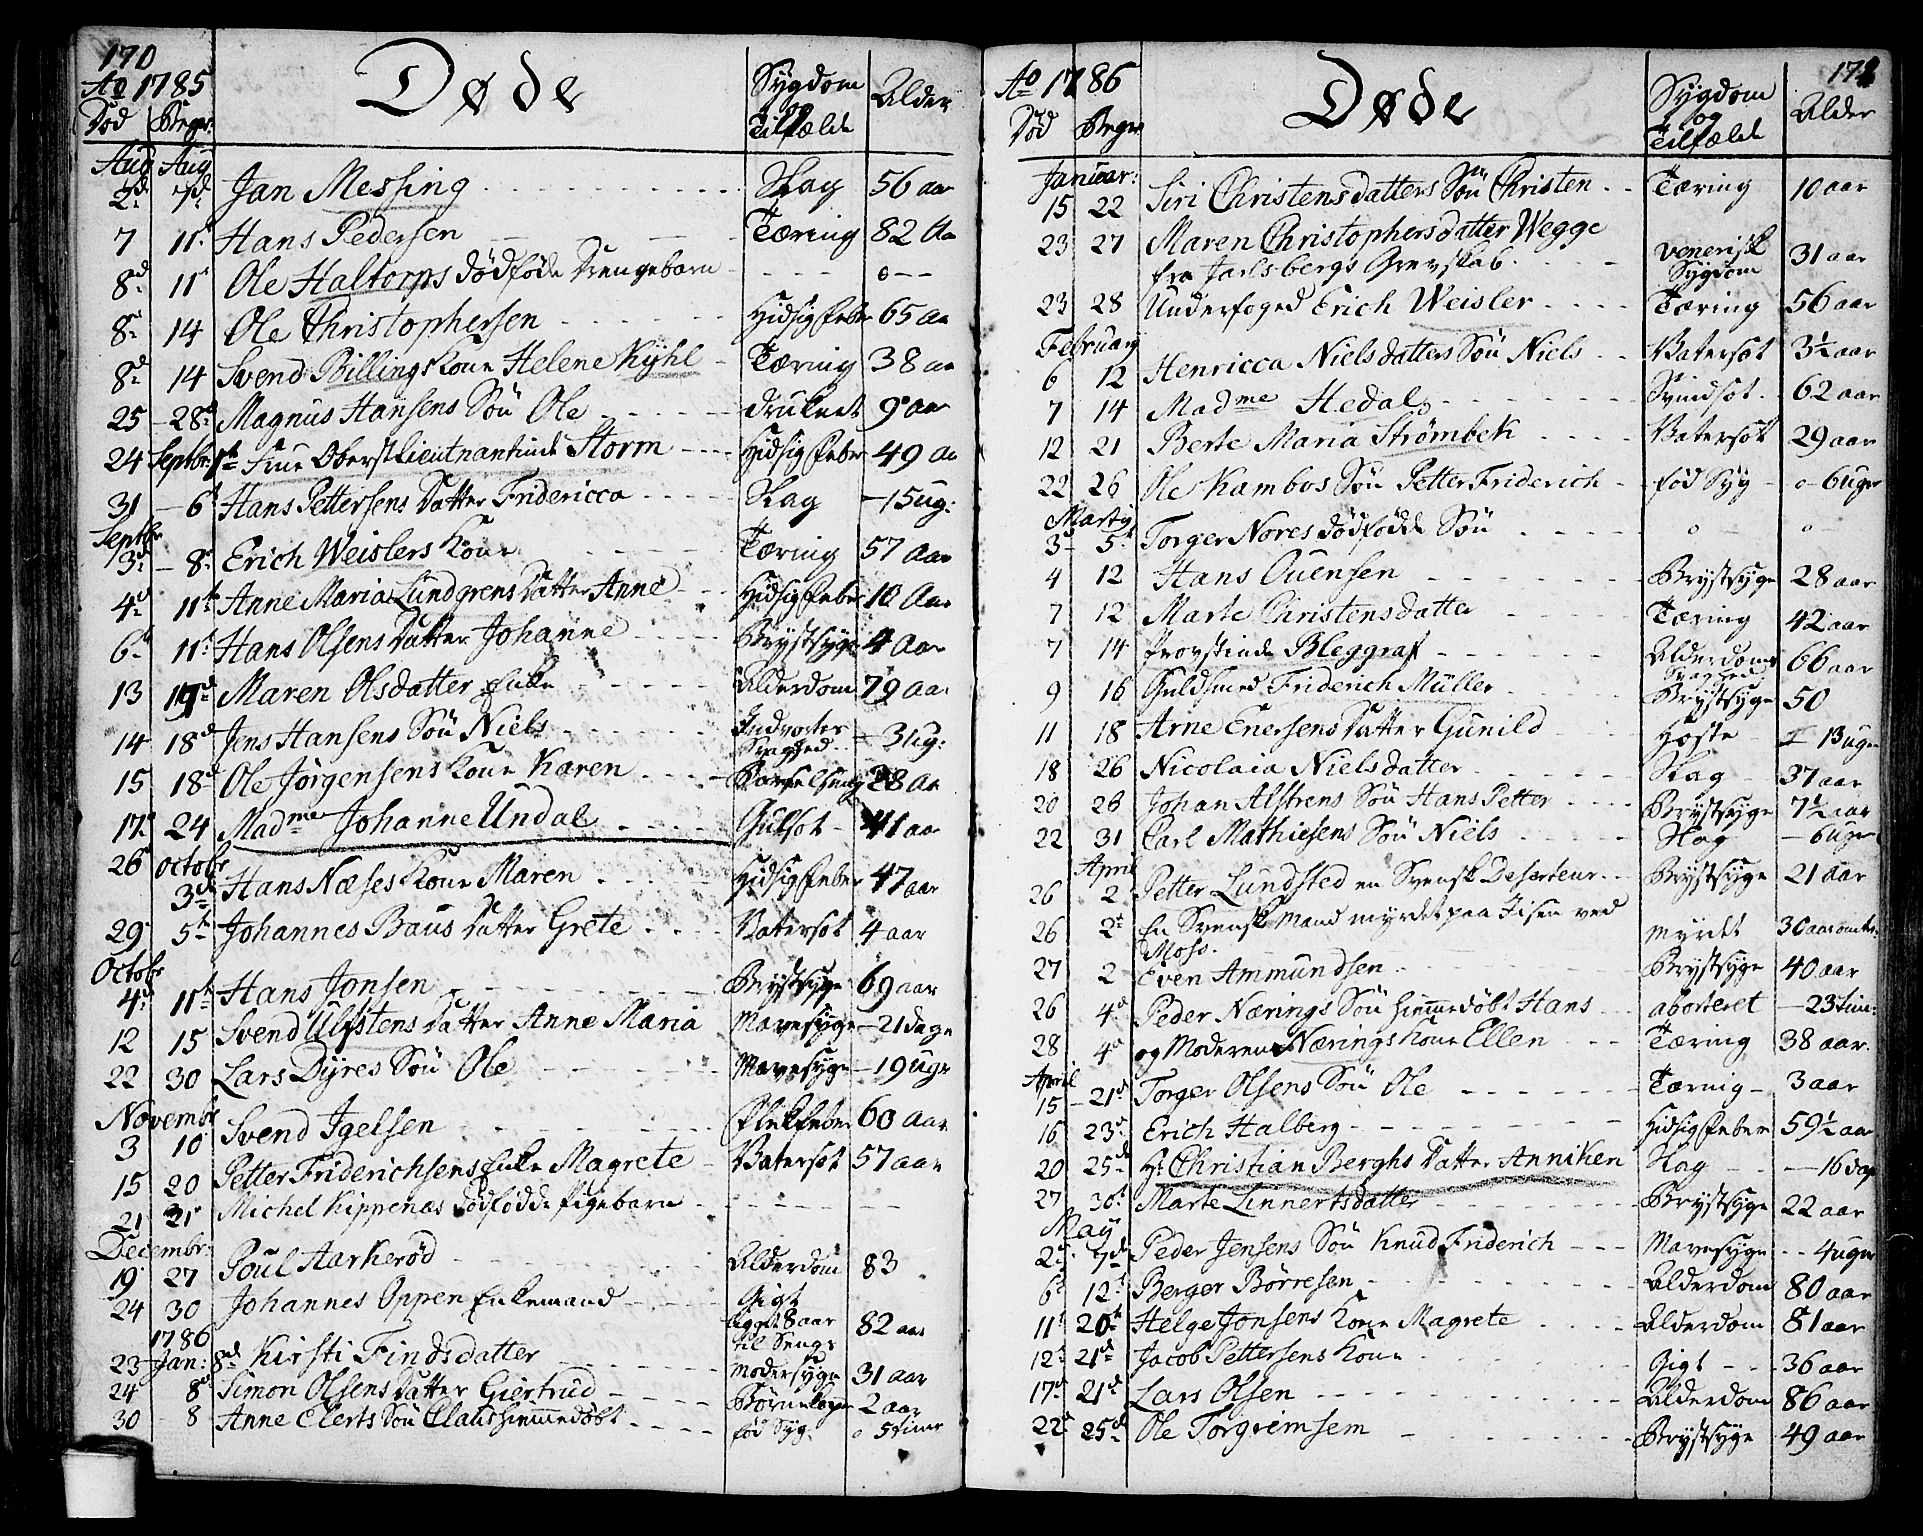 170
Ao 1785 Døde Sygdom og Tilfælde Alder
Død Begr:
Aug Aug
2d 7d Jan Messing Slag 56 aar
7 11t Hans Pedersen Tæring 82 Aa
8d 11t Ole Haltorps dødføde Drengebarn o
8d 14 Ole Christophersen Hidsig Feber 65 Aa
8d 14 Svend Billings Kone Helene Kyhl Tæring 38 aa
25 28d Magnus Hansens Søn Ole druknet 9 aar
24 Septbr: 1t Frue Oberst Lieutnantinde Storm Hidsig Feber 49 Aa
31 6t Hans Pettersens Datter Fridericca Slag 15 ug:
Septbr
3d 8t Erich Weislers Kone Tæring 57 Aar
4d 11t Anne Maria Lundgrens Datter Anne Hidsig Feber 10 Aar
6t 11t Hans Olsens Datter Johanne Brystsyge 4 Aar
13 Maren Olsdatter Enke Alderdom 79 Aa
14 18d Jens Hansens Søn Niels Indvortes Svaghed 3 ug:
15 18d Ole Jørgensens Kone Karen Barselseng 28 Aa
17d 24 Madme Johanne Undal Gulsot 41 aar
26 Octobr
3d Hans Næses Kone Maren Hidsig Feber 47 aar
29 5t Johannes Baus Datter Grete Vatersot 4 aar
Octobr
4d 11t Hans Jonsen Brystsyge 69 aar
12 15 Svend Ulfstens Datter Anne Maria Mavesyge 21 dage
22 30 Lars Dyres Søn Ole Mavesyge 19 Uger
Novembr
3 10 Svend Igelsen Flekfeber 60 Aar
15 20 Petter Friderichsens Enke Magrete Vatersot 57 aar
21 21 Michel Kippenæs dødfødde Pigebarn
Decembr:
19 27 Poul Aarkerød Alderdom 83
24 30 Johannes Oppen Enkemand Gigt ligget 8 aar til Sengs 82 aar
1786
23 Jan: 8d Kirsti Findsdatter Modersyge 31 aar
24 8d Simon Olsens Datter Giertrud 2 aar
30 8 Anne Elerts Søn Claus hiemmedøbt fød Syg. 5 timer
171
Ao 1786 Døde Sygdom og Tilfælde Alder
Død Begr
Januar:
15 22 Siri Christensdatters Søn Christen Tæring 10 aar
23 27 Maren Christophersdatter Wegge
fra Jarlsbergs Grevskab venerisk Sygdom 31 aar
23 28 Underfoged Erich Weisler Tæring 56 aar
February
6 12 Henricca Nielsdatters Søn Niels Vatersot 3½ aar
7 14 Madme Hedals Svindsot 62 aar
12 21 Berte Maria Strømbek Vatersot 29 aar
22 26 Ole Kambos Søn Petter Friderich fød Syg o 6 uger
Marty
3d 5t Torger Nores dødfødde Søn o o
4 12 Hans Ouensen Brystsyge 28 aar
7 12 Marte Christensdatter Tæring 42 aar
7 14 Provstinde Bleggraf Alderdoms Svaghed 66 aar
9 16 Guldsmed Friderich Müller Brystsyge 50
11 18 Arne Enersens Datter Gunild Hoste 13 uger
18 26 Nicolaia Nielsdatter Slag 37 aar
20 26 Johan Alstrens Søn Hans Petter Brystsyge 7½ aar
22 31 Carl Mathiesens Søn Niels Slag 6 uger
April
26 2 Petter Lundsted en Svensk Deserteur Brystsyge 21 aar
26 2t En Svensk Mand myrdet paa Iisen ved
Moss. myrdet 30 aar omtr:
27 2 Even Ammundsen Brystsyge 40 aar
26 4d Peder Nærings Søn hiemmedøbt Hans aborteret 23 tim:
28 4d og Moderen Nærings Kone Ellen Tæring 38 aar.
April
15 21d Torger Olsens Søn Ole Tæring 3 aar
16 23d Erich Halberg Hidsig Feber 59½ aar
20 25d Hr Christian Berghs Datter Anniken Slag 16 dag
27 30t Marte Linnertsdatter Brystsyge 22 aar
May
2d 7d Peder Jensens Søn Knud Friderich Mavesyge 4 uger
6t 12t Berger Børresen Alderdom 80 aar
11t 20t Helge Jonsens Kone Magrete Alderdom 81 aar
12t 21d Jacob Pettersens Kone Gigt 36 aar
17d 21d Lars Olsen Alderdom 86 aar
22d 25d Ole Torgrimsem Brystsyge 49 aar